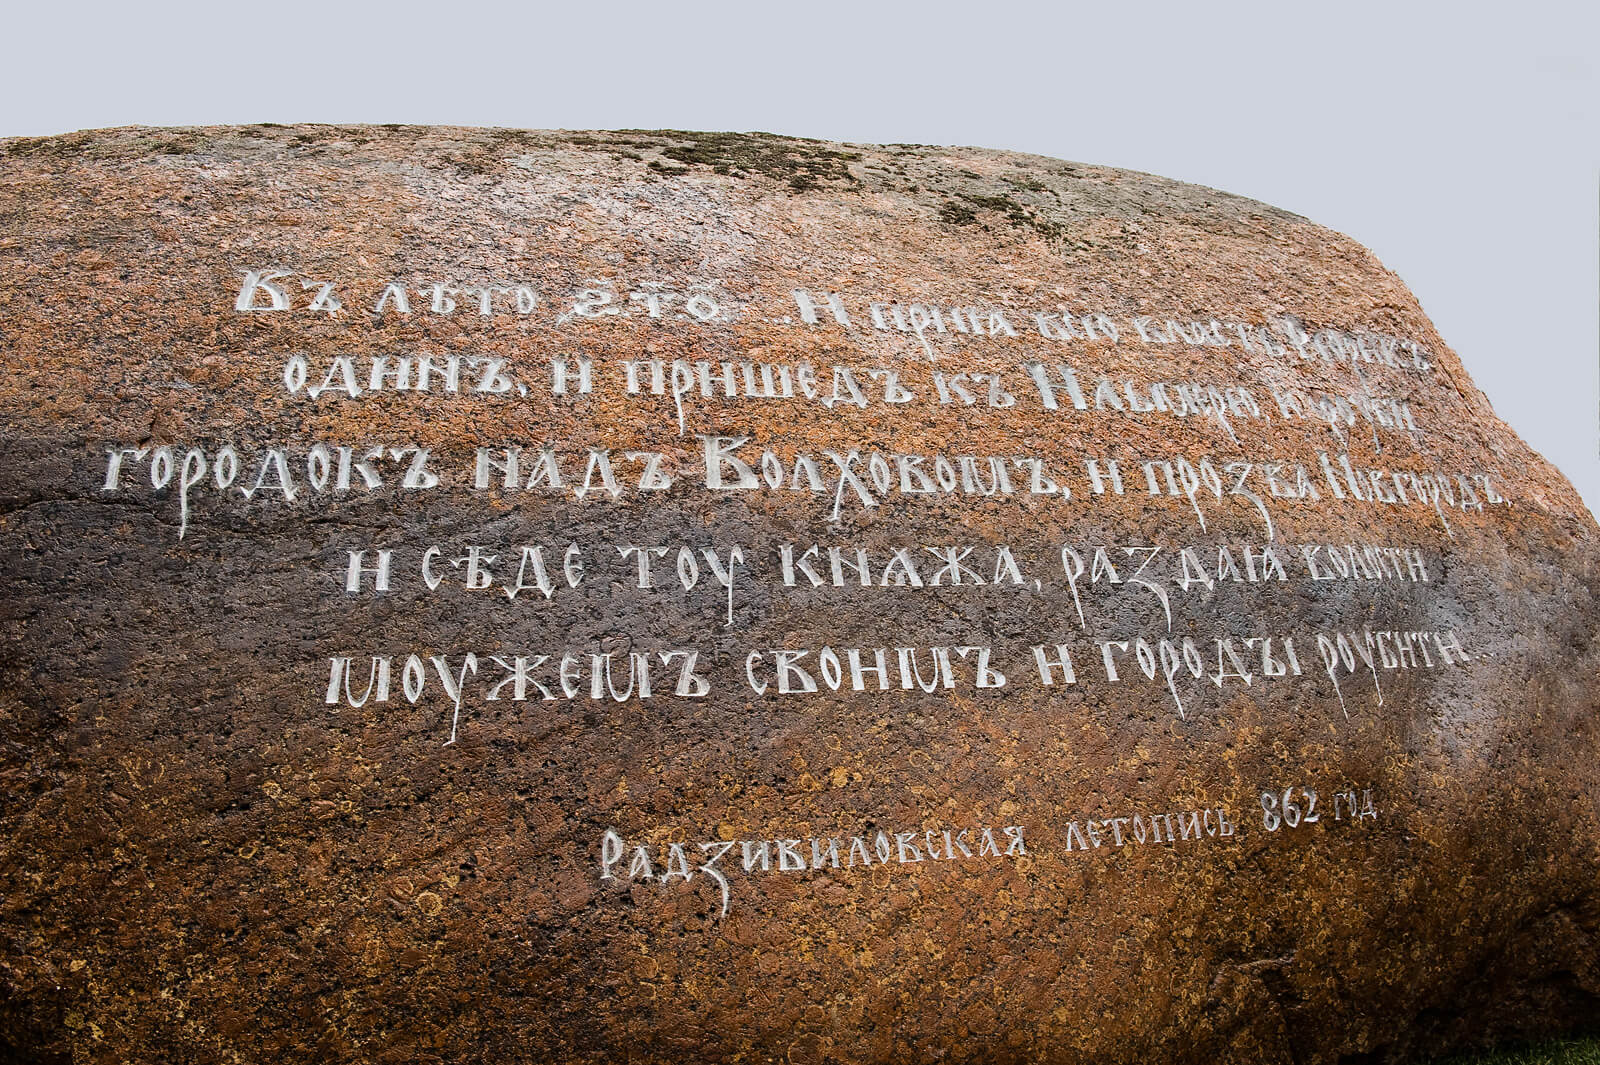 Въ лѣто ѕ҃то ...И прїꙗ всю власть Рюрикъ
одинъ, и пришедъ къ Ильмерю и сруби
городокъ надъ Волховомъ, и прозва Новгородъ,
и сѣде тоу кнѧжа, раздаꙗ волости
моужемъ своимъ и городы роубити...
Радзивиловская летопись 862 год